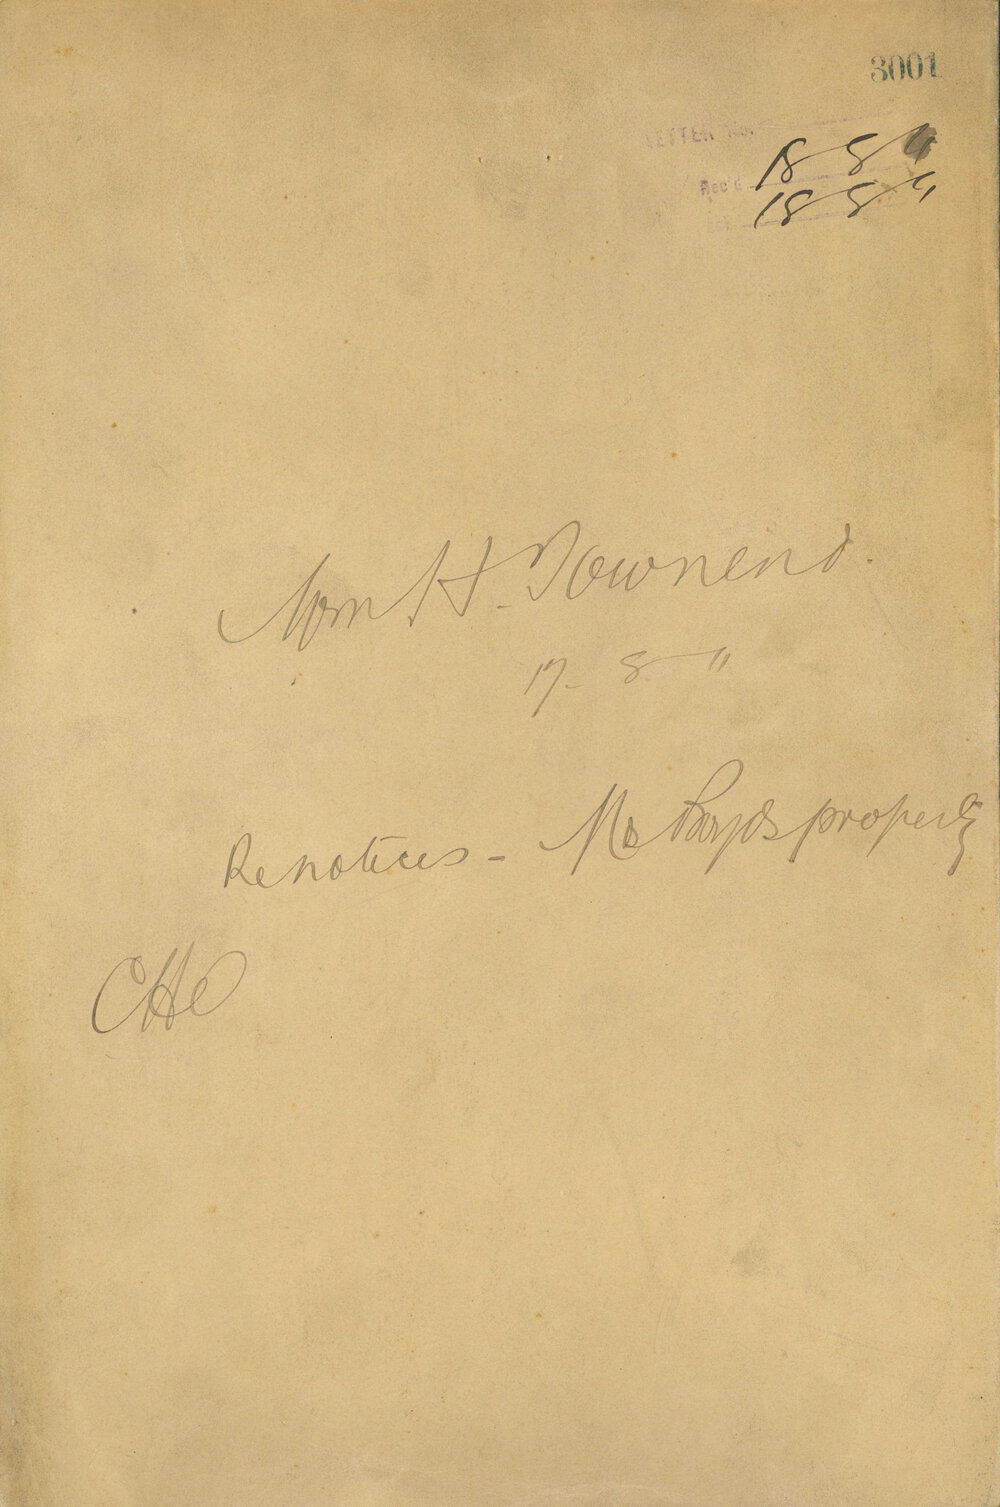 3001
LETTER No.
Rec'd 18 8 11
18 8 11
Wm H. Townend.
17 - 8 - 11
Re notices - Mr Boyds property
CHO